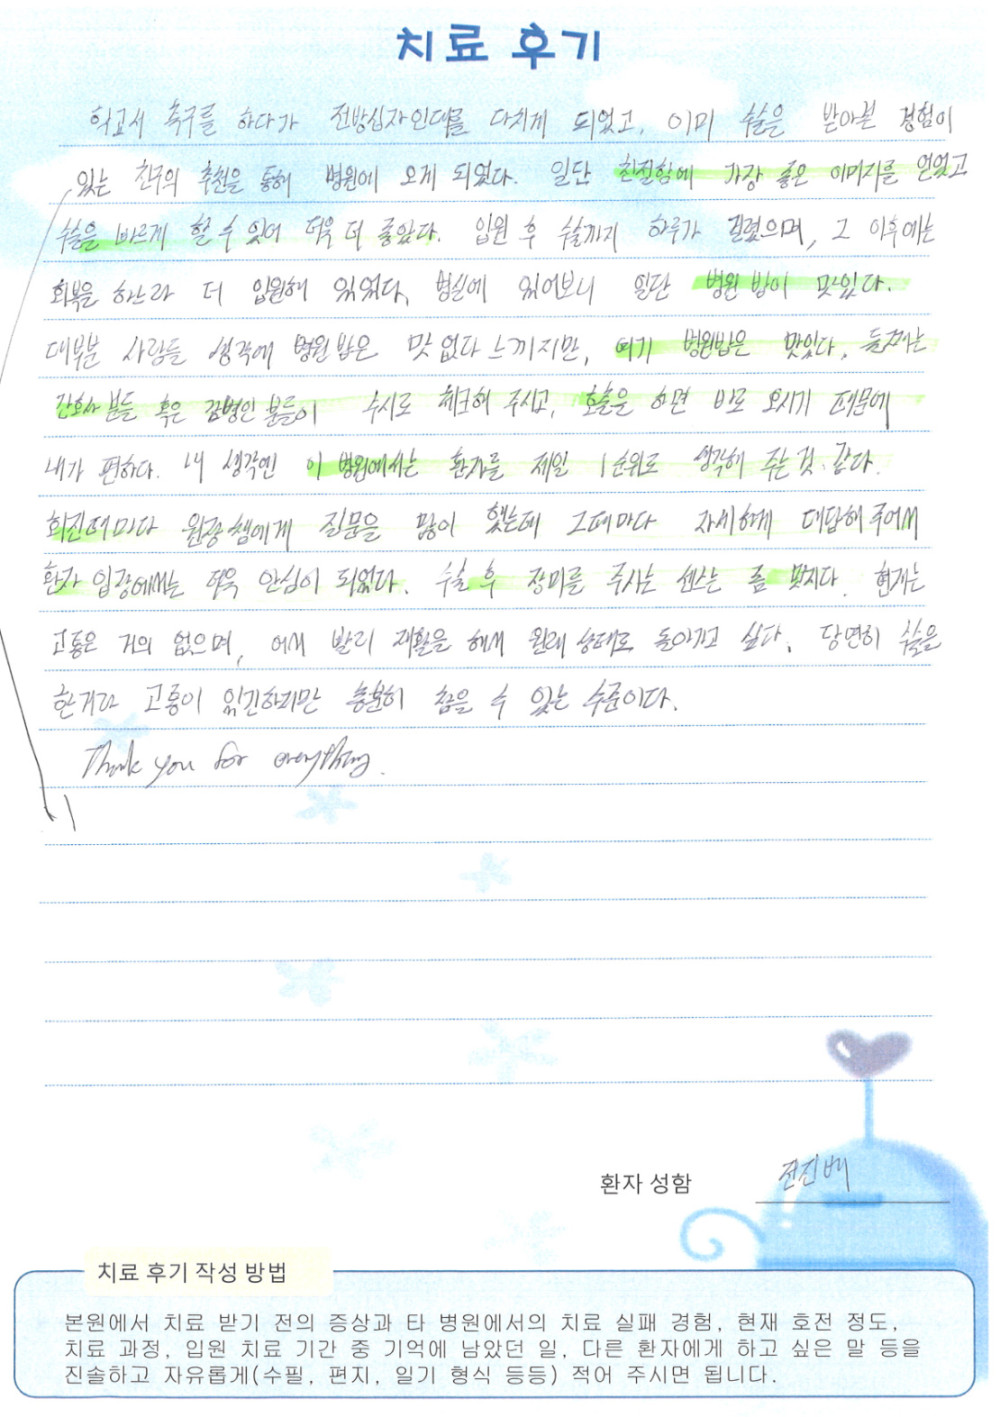 치료 후기
학교서 축구를 하다가 전방십자인대를 다치게 되었고, 이미 수술을 받아본 경험이
있는 친구의 추천을 통해 병원에 오게 되었다. 일단 친절함에 가장 좋은 이미지를 얻었고
수술을 빠르게 할 수 있어 더욱 더 좋았다. 입원 후 수술까지 하루가 걸렸으며, 그 이후에는
회복을 하느라 더 입원해 있었다. 병실에 있어보니 일단 병원 밥이 맛있다.
대부분 사람들 생각에 병원밥은 맛없다 느끼지만, 여기 병원밥은 맛있다. 둘째는
간호사 분들 혹은 간병인 분들이 수시로 체크해 주시고, 호출을 하면 바로 오시기 때문에
내가 편하다. 내 생각엔 이 병원에서는 환자를 제일 1순위로 생각해 주는 것 같다.
회진때마다 원장쌤에게 질문을 많이 했는데 그때마다 자세하게 대답해 주어서
환자 입장에서는 더욱 안심이 되었다. 수술 후 장미를 주시는 센스는 좀 멋지다. 현재는
고통은 거의 없으며, 어서 빨리 재활을 해서 원래 상태로 돌아가고 싶다. 당연히 수술을
한거라 고통이 있긴하지만 충분히 참을 수 있는 수준이다.
Thank you for everything.
환자 성함 전진배
치료 후기 작성 방법
본원에서 치료 받기 전의 증상과 타 병원에서의 치료 실패 경험, 현재 호전 정도,
치료 과정, 입원 치료 기간 중 기억에 남았던 일, 다른 환자에게 하고 싶은 말 등을
진솔하고 자유롭게(수필, 편지, 일기 형식 등등) 적어 주시면 됩니다.